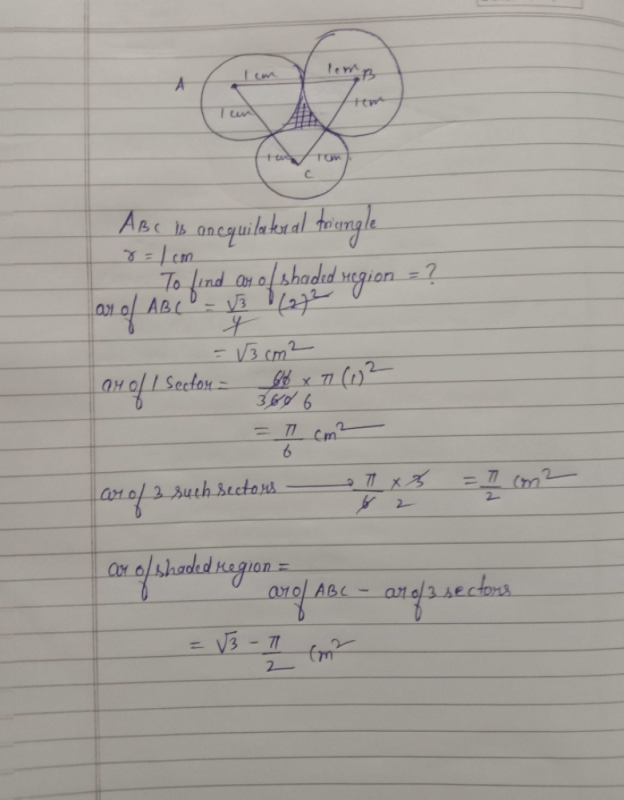 1cm 1cm B
A
1cm 1cm
1cm 1cm
C
ABC is an equilateral triangle
r = 1cm
To find ar of shaded region = ?
ar of ABC = √3/4 (2)²
= √3 cm²
ar of 1 Sector = 60/360 6 × π (1)²
= π/6 cm²
ar of 3 such sectors → π/6 2 × 3 = π/2 cm²
ar of shaded region =
ar of ABC - ar of 3 sectors
= √3 - π/2 cm²